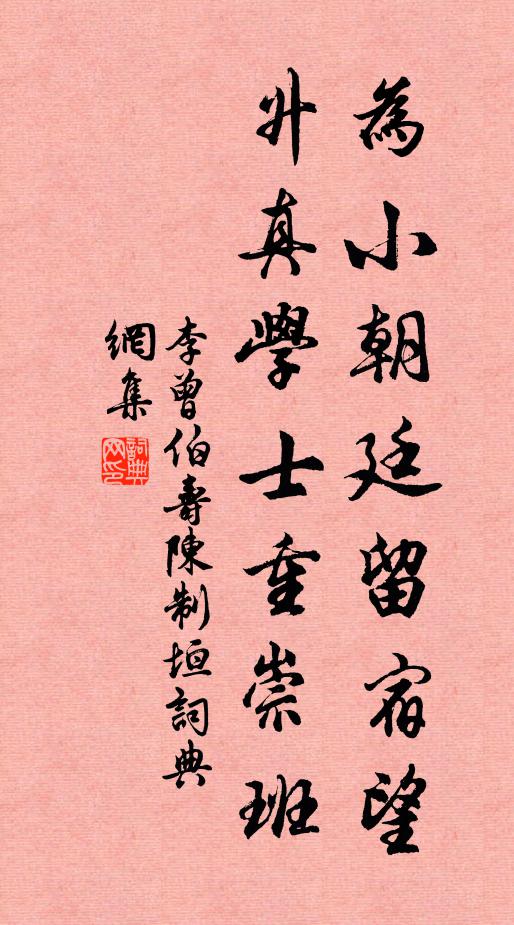 為小朝廷留宿望
升真學士重崇班
李曾伯壽陳制垣詞典
網集
詞典網印